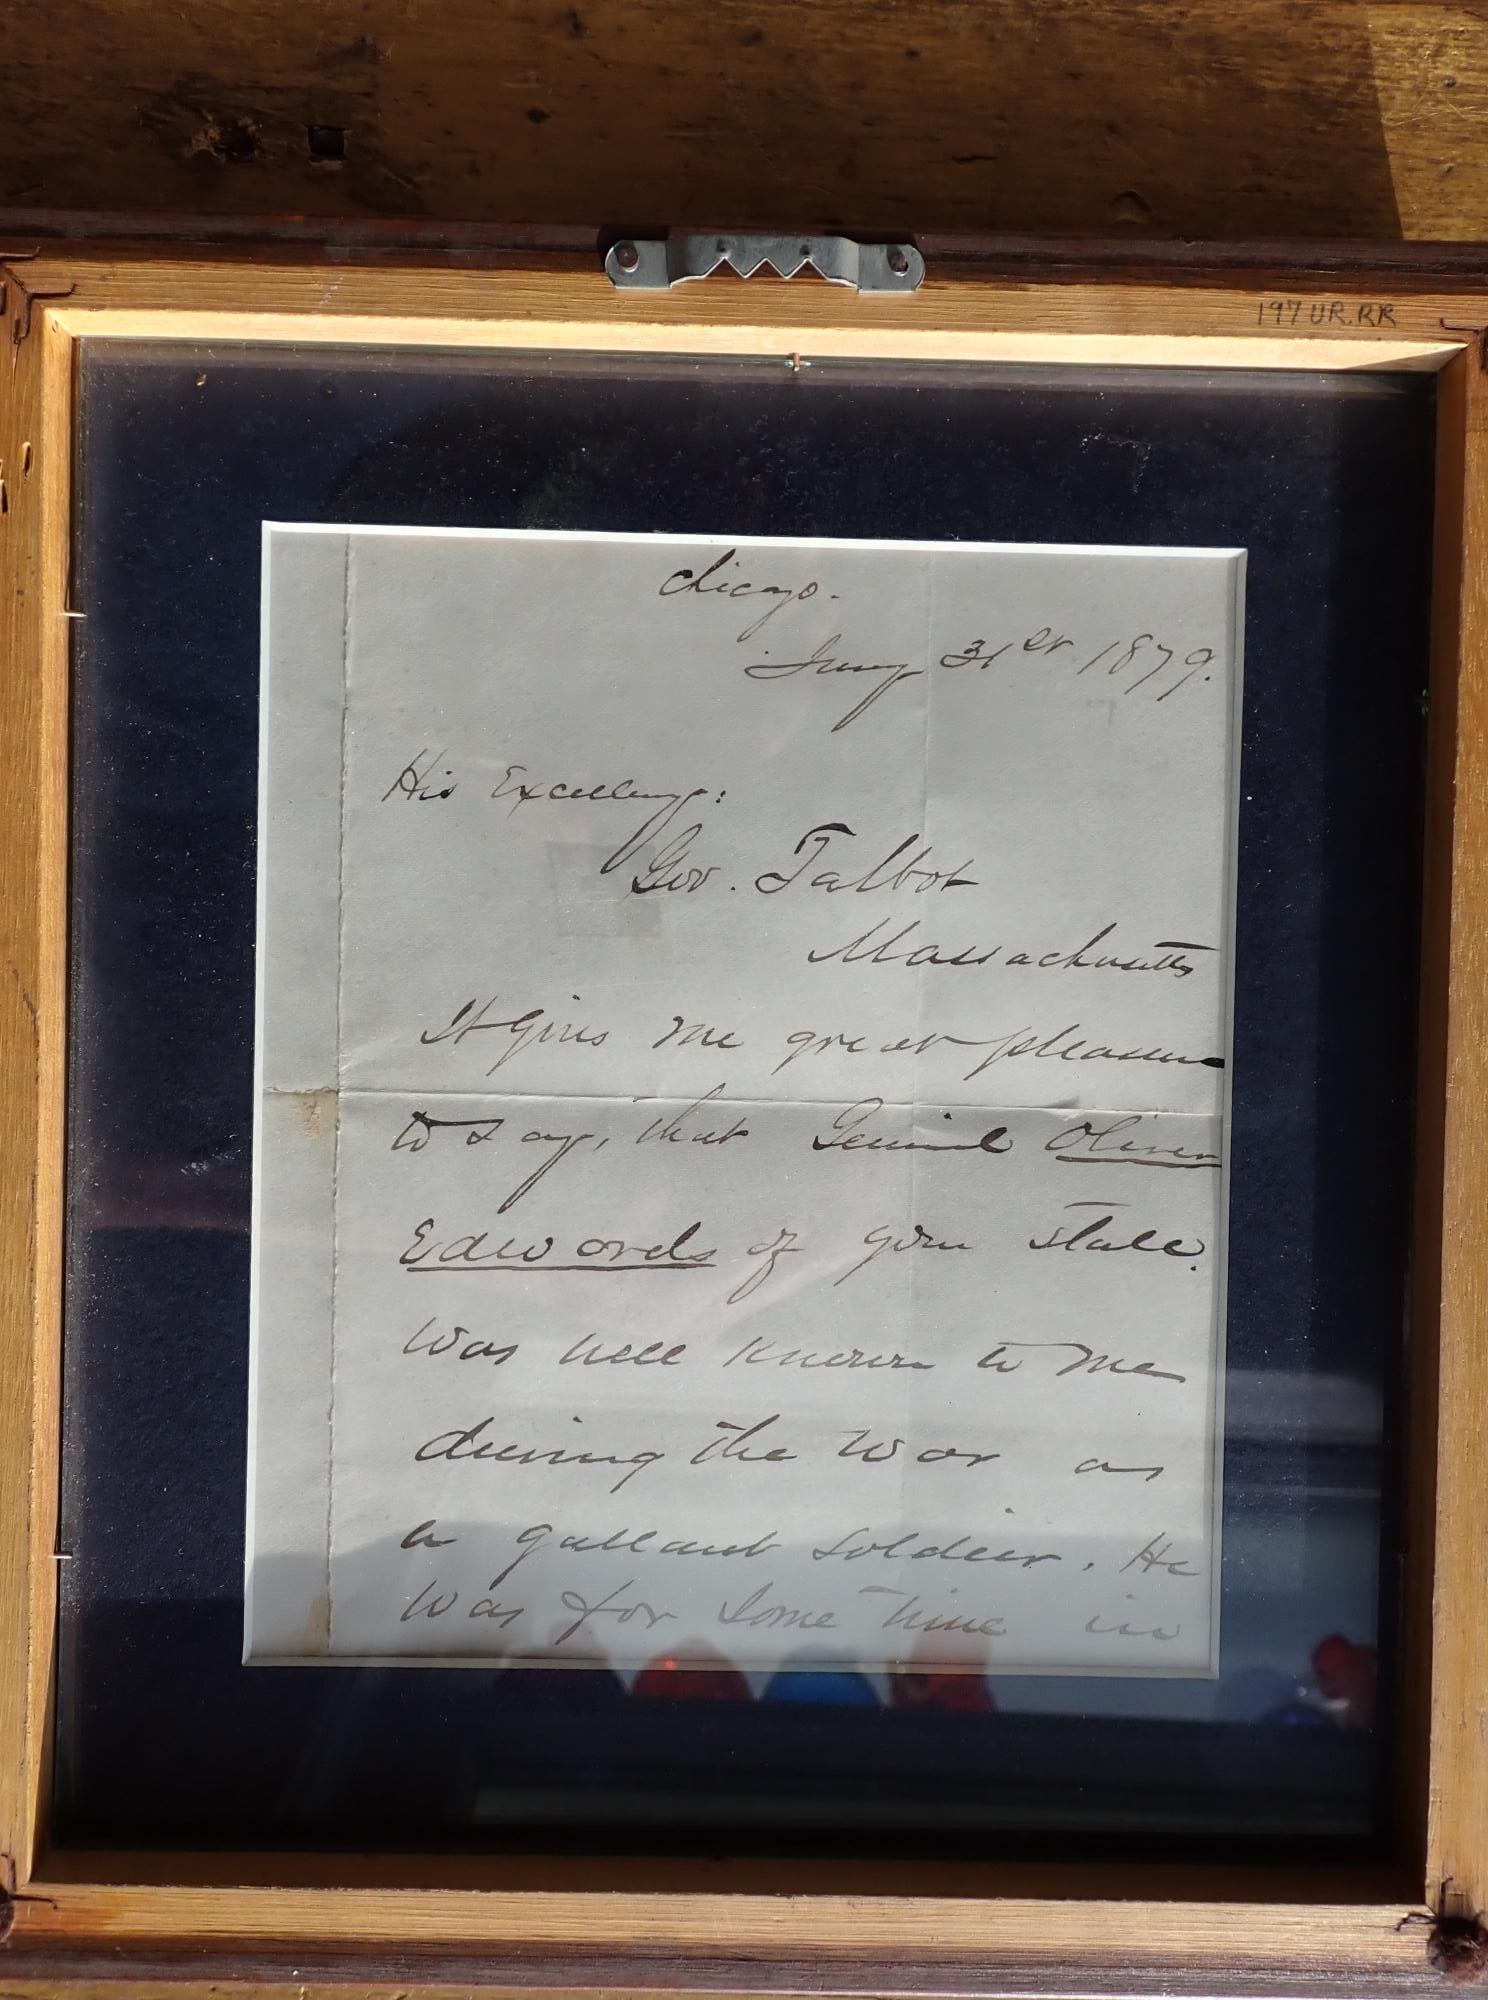 197 UR.RR
Chicago.
Jany 31st 1879.
His Excellency:
Gov. Talbot
Massachusetts
It gives me great pleasure
to say, that General Oliver
Edwards of your state.
was well known to me
during the war as
a gallant soldier. He
was for some time in